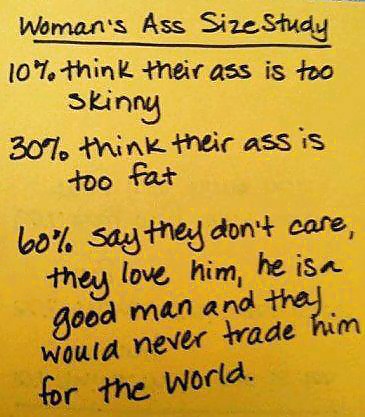 Woman's Ass Size Study
10% think their ass is too
skinny
30% think their ass is
too fat
60% say they don't care,
they love him, he is a
good man and they
would never trade him
for the world.